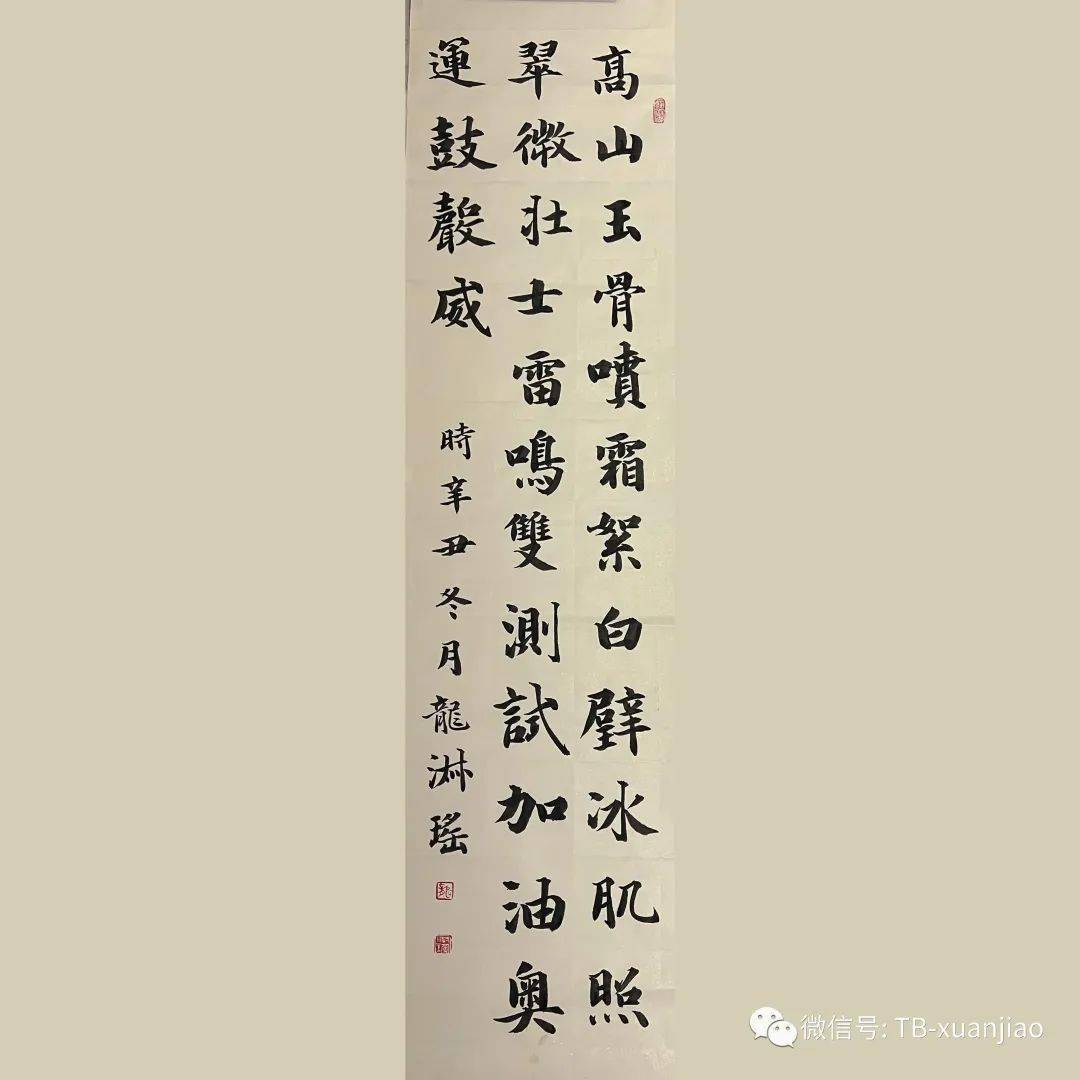 高山玉骨噴霜絮白壁冰肌照
翠微壯士雷鳴雙測試加油奧
運鼓聲威
時辛丑冬月龍淋瑤
微信号: TB-xuanjiao